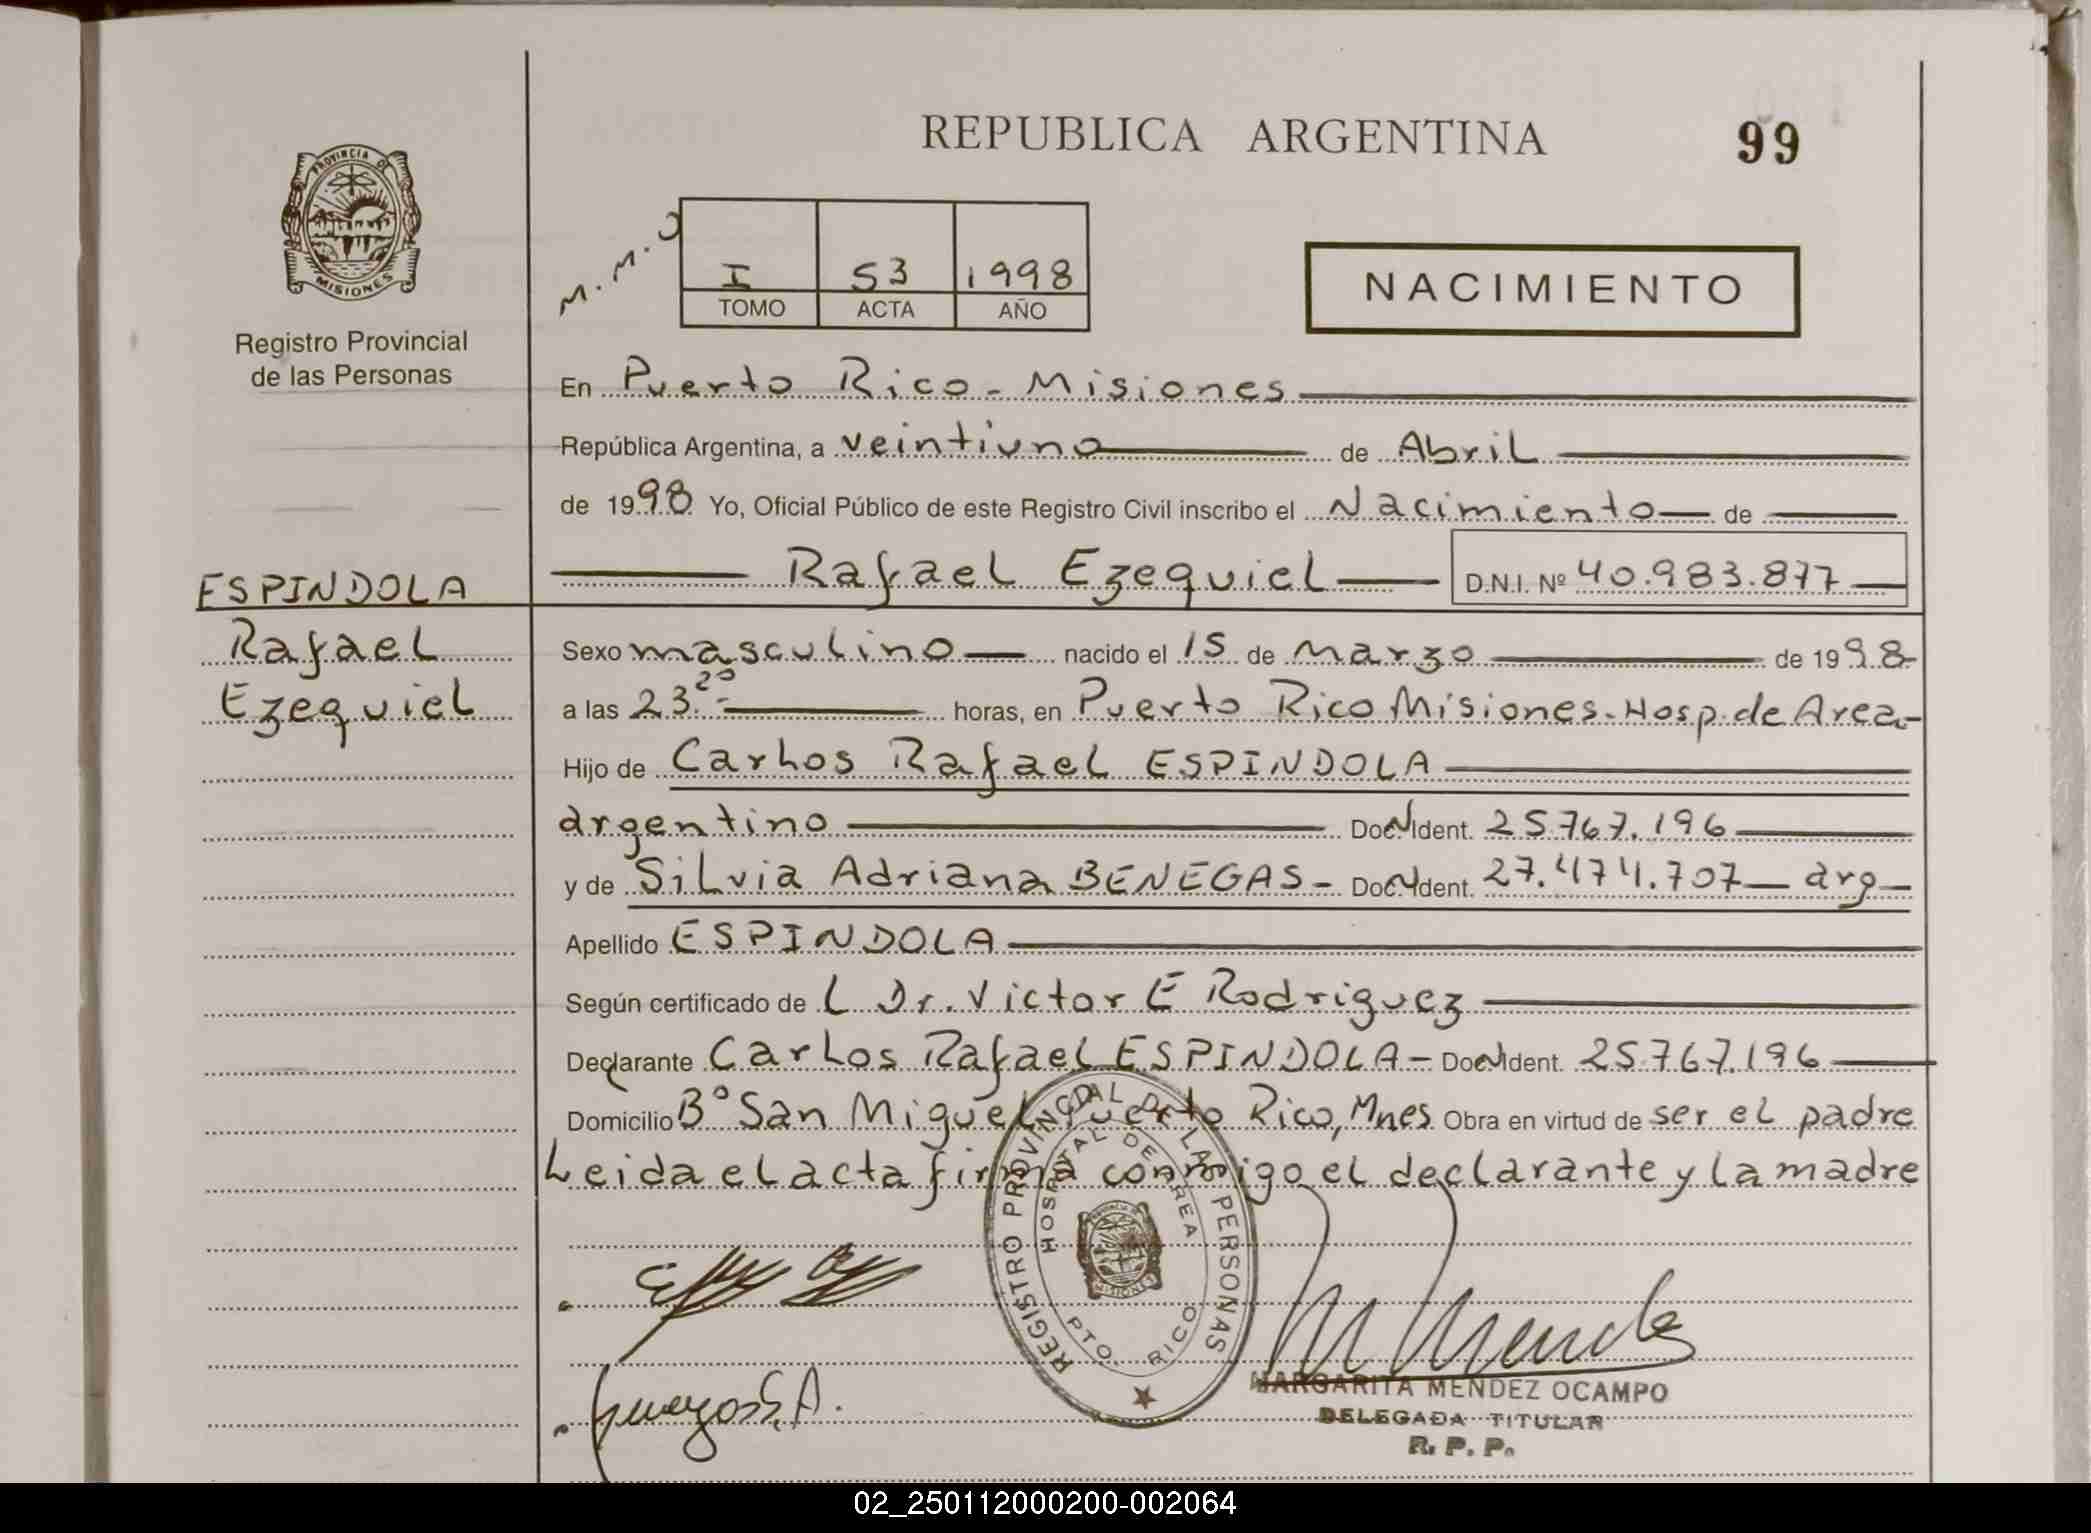 REPUBLICA ARGENTINA
99
PROVINCIA DE
MISIONES
Registro Provincial
de las Personas
M.M.O
I 53 1998
TOMO ACTA AÑO
NACIMIENTO
En Puerto Rico - Misiones
República Argentina, a veintiuno de Abril
de 1998 Yo, Oficial Público de este Registro Civil inscribo el Nacimiento de
Rafael Ezequiel D.N.I. Nº 40.983.877
ESPINDOLA
Rafael
Ezequiel
Sexo masculino nacido el 15 de Marzo de 1998
a las 23.20 horas, en Puerto Rico Misiones. Hosp. de Area
Hijo de Carlos Rafael ESPINDOLA
argentino DocNIdent. 25.767.196
y de Silvia Adriana BENEGAS - DocNIdent. 27.474.707 arg
Apellido ESPINDOLA
Según certificado de L Dr. Victor E Rodriguez
Declarante Carlos Rafael ESPINDOLA - DocNIdent. 25.767.196
Domicilio Bº San Miguel Puerto Rico, Mnes Obra en virtud de ser el padre
Leida el acta firma conmigo el declarante y la madre
REGISTRO PROVINCIAL DE LAS PERSONAS
HOSPITAL DE AREA
MISIONES
PTO. RICO
MARGARITA MENDEZ OCAMPO
DELEGADA TITULAR
R. P. P.
02_250112000200-002064